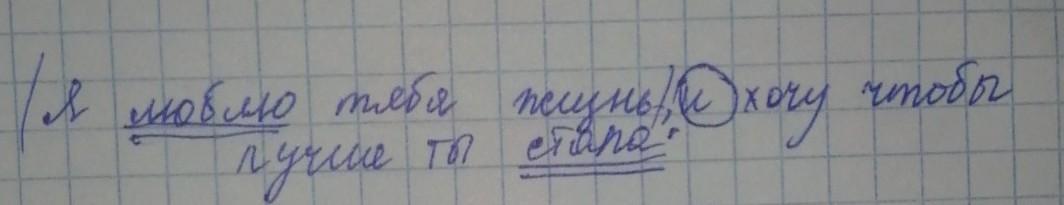 (Я люблю тебя жизнь), и хочу чтобы
лучше ты стала.